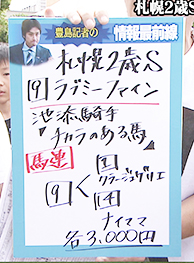 札幌2歳S
豊島記者の
情報最前線
札幌2歳S
9 ラブミーファイン
池添騎手
「チカラのある馬」
馬連
9く
1
クラージュゲリエ
4
ナイママ
各3,000円